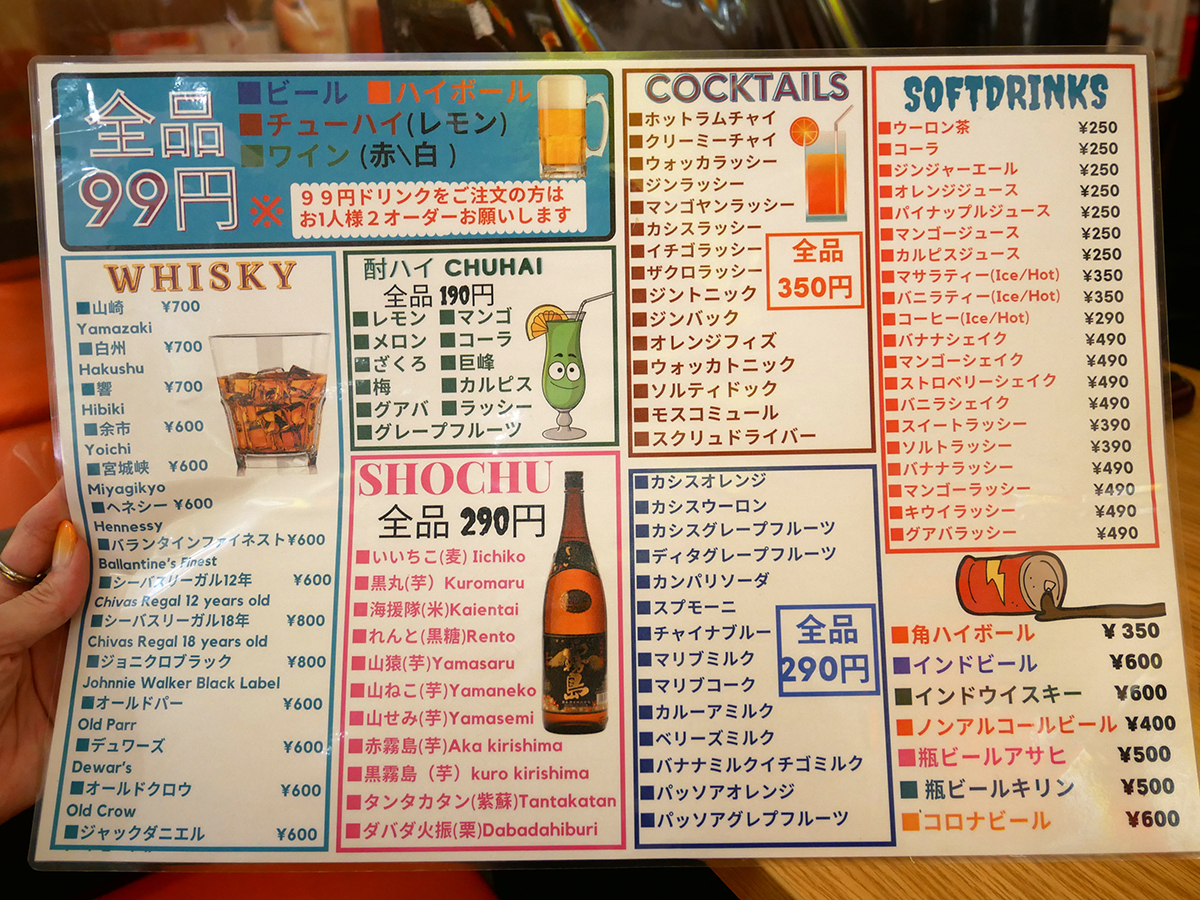 全品
99円
■ビール ■ハイボール
■チューハイ(レモン)
■ワイン (赤\白 )
※
９９円ドリンクをご注文の方は
お1人様２オーダーお願いします
WHISKY
■山崎 ¥700
Yamazaki
■白州 ¥700
Hakushu
■響 ¥700
Hibiki
■余市 ¥600
Yoichi
■宮城峡 ¥600
Miyagikyo
■ヘネシー ¥600
Hennessy
■バランタインファイネスト¥600
Ballantine's Finest
■シーバスリーガル12年 ¥600
Chivas Regal 12 years old
■シーバスリーガル18年 ¥800
Chivas Regal 18 years old
■ジョニクロブラック ¥800
Johnnie Walker Black Label
■オールドパー ¥600
Old Parr
■デュワーズ ¥600
Dewar's
■オールドクロウ ¥600
Old Crow
■ジャックダニエル ¥600
酎ハイ CHUHAI
全品 190円
■レモン ■マンゴ
■メロン ■コーラ
■ざくろ ■巨峰
■梅 ■カルピス
■グアバ ■ラッシー
■グレープフルーツ
SHOCHU
全品 290円
■いいちこ(麦) Iichiko
■黒丸(芋) Kuromaru
■海援隊(米)Kaientai
■れんと(黒糖)Rento
■山猿(芋)Yamasaru
■山ねこ(芋)Yamaneko
■山せみ(芋)Yamasemi
■赤霧島(芋)Aka kirishima
■黒霧島（芋）kuro kirishima
■タンタカタン(紫蘇)Tantakatan
■ダバダ火振(栗)Dabadahiburi
霧島
COCKTAILS
■ホットラムチャイ
■クリーミーチャイ
■ウォッカラッシー
■ジンラッシー
■マンゴヤンラッシー
■カシスラッシー
■イチゴラッシー
■ザクロラッシー
■ジントニック
■ジンバック
■オレンジフィズ
■ウォッカトニック
■ソルティドック
■モスコミュール
■スクリュドライバー
全品
350円
■カシスオレンジ
■カシスウーロン
■カシスグレープフルーツ
■ディタグレープフルーツ
■カンパリソーダ
■スプモーニ
■チャイナブルー
■マリブミルク
■マリブコーク
■カルーアミルク
■ベリーズミルク
■バナナミルクイチゴミルク
■パッソアオレンジ
■パッソアグレプフルーツ
全品
290円
SOFTDRINKS
■ウーロン茶 ¥250
■コーラ ¥250
■ジンジャーエール ¥250
■オレンジジュース ¥250
■パイナップルジュース ¥250
■マンゴージュース ¥250
■カルピスジュース ¥250
■マサラティー(Ice/Hot) ¥350
■バニラティー(Ice/Hot) ¥350
■コーヒー(Ice/Hot) ¥290
■バナナシェイク ¥490
■マンゴーシェイク ¥490
■ストロベリーシェイク ¥490
■バニラシェイク ¥490
■スイートラッシー ¥390
■ソルトラッシー ¥390
■バナナラッシー ¥490
■マンゴーラッシー ¥490
■キウイラッシー ¥490
■グアバラッシー ¥490
■角ハイボール ¥ 350
■インドビール ¥600
■インドウイスキー ¥600
■ノンアルコールビール ¥400
■瓶ビールアサヒ ¥500
■瓶ビールキリン ¥500
■コロナビール ¥600